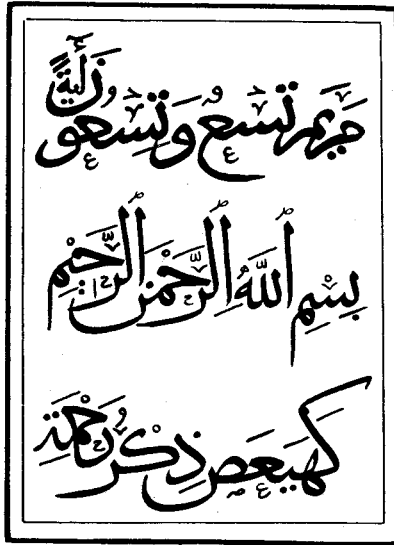 مَريَم تِسْعٌ وَتِسْعُونَ أٰيَةً
بِسْمِ ٱللَّهِ ٱلرَّحْمٰنِ ٱلرَّحِيْمِ
كٓهيعص ذِكْرُ رَحْمَةِ